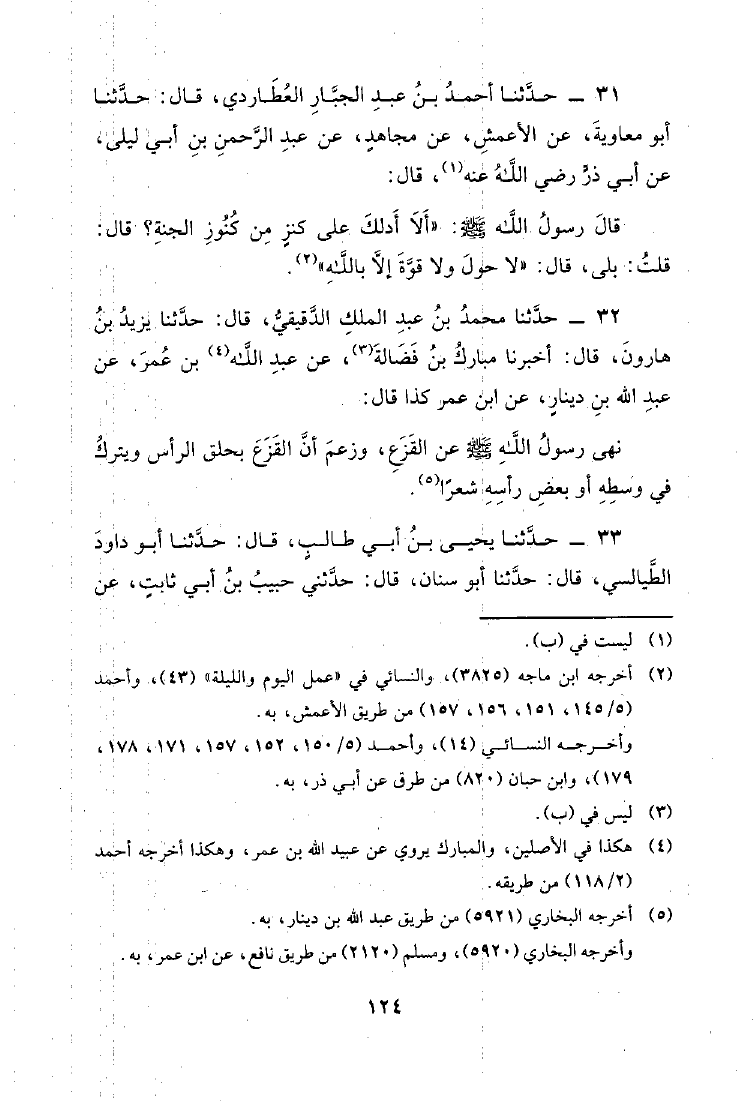 ٣١ ـ حدَّثنا أحمدُ بـنُ عبدِ الجبَّارِ العُطَاردي، قـال: حدَّثنـا
أبو معاويةَ، عن الأعمشِ، عن مجاهدٍ، عن عبدِ الرَّحمنِ بنِ أبـي ليلى،
عن أبـي ذرٍّ رضي اللَّـهُ عنه(١)، قال:
قالَ رسولُ اللَّـه ﷺ: «أَلَا أدلكَ على كنزٍ مِن كُنُوزِ الجنةِ؟ قال:
قلتُ: بلى، قال: «لا حولَ ولا قوَّةَ إلَّا باللَّـهِ»(٢).
٣٢ ـ حدَّثنا محمدُ بنُ عبدِ الملكِ الدَّقيقيُّ، قال: حدَّثنا يزيدُ بنُ
هارونَ، قال: أخبرنا مباركُ بنُ فَضَالةَ(٣)، عن عبدِ اللَّـه(٤) بن عُمرَ، عن
عبدِ الله بنِ دينارٍ، عن ابنِ عمر كذا قال:
نهى رسولُ اللَّـهِ ﷺ عن القَزَعِ، وزعمَ أنَّ القَزَعَ بحلق الرأس ويتركُ
في وسطِهِ أو بعضِ رأسِهِ شعرًا(٥).
٣٣ ـ حـدَّثنـا يحيـى بـنُ أبـي طـالـبٍ، قـال: حـدَّثنـا أبـو داودَ
الطَّيالسي، قال: حدَّثنا أبو سنان، قال: حدَّثني حبيبُ بنُ أبـي ثابتٍ، عن
(١) ليست في (ب).
(٢) أخرجه ابن ماجه (٣٨٢٥)، والنسائي في «عمل اليوم والليلة» (٤٣)، وأحمد
(١٤٥/٥، ١٥١، ١٥٦، ١٥٧) من طريق الأعمش، به.
وأخـرجـه النسـائـي (١٤)، وأحمـد (١٥٠/٥، ١٥٢، ١٥٧، ١٧١، ١٧٨،
١٧٩)، وابن حبان (٨٢٠) من طرق عن أبـي ذر، به.
(٣) ليس في (ب).
(٤) هكذا في الأصلين، والمبارك يروي عن عبيد الله بن عمر، وهكذا أخرجه أحمد
(١١٨/٢) من طريقه.
(٥) أخرجه البخاري (٥٩٢١) من طريق عبد الله بن دينار، به.
وأخرجه البخاري (٥٩٢٠)، ومسلم (٢١٢٠) من طريق نافع، عن ابن عمر، به.
١٢٤